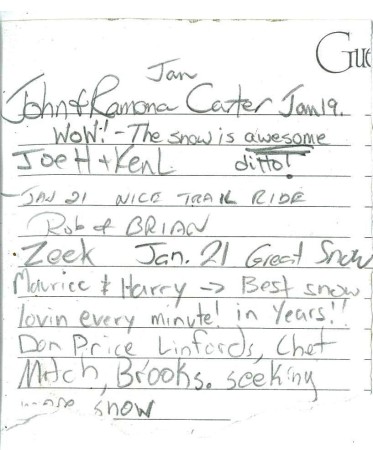 Gue
Jan
John & Ramona Carter Jan 19.
WOW!! - The snow is awesome
Joe H + Ken L ditto!
JAN 21 NICE TRAIL RIDE
Rob & BRIAN
Zeek Jan. 21 Great Snow
Maurice & Harry → Best snow
lovin every minute! in Years!!
Don Price Linfords, Chet
Mitch, Brooks. seeking
snow